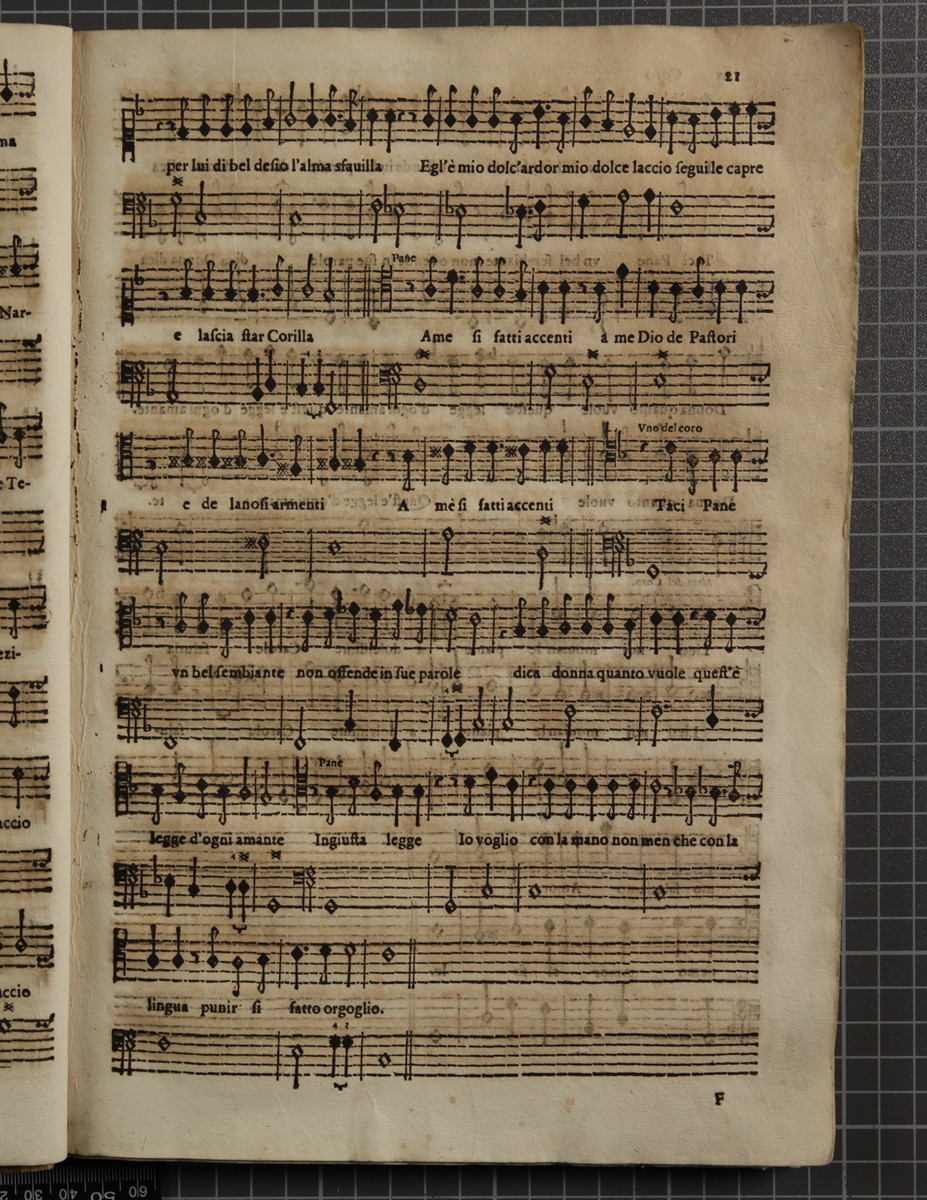 21
per lui di bel desio l'alma sfauilla Egl'è mio dolc'ardor mio dolce laccio segui le capre
Pane
e lascia star Corilla Ame si fatti accenti à me Dio de Pastori
Vno del coro
e de lanosi armenti A mè si fatti accenti Taci Pane
vn bel sembiante non offende in sue parole dica donna quanto vuole quest'è
Pane
legge d'ogni amante Ingiusta legge Io voglio con la mano non men che con la
lingua punir si fatto orgoglio.
F
ma
Nar-
e Te-
ezi-
accio
accio
60
50
40
30